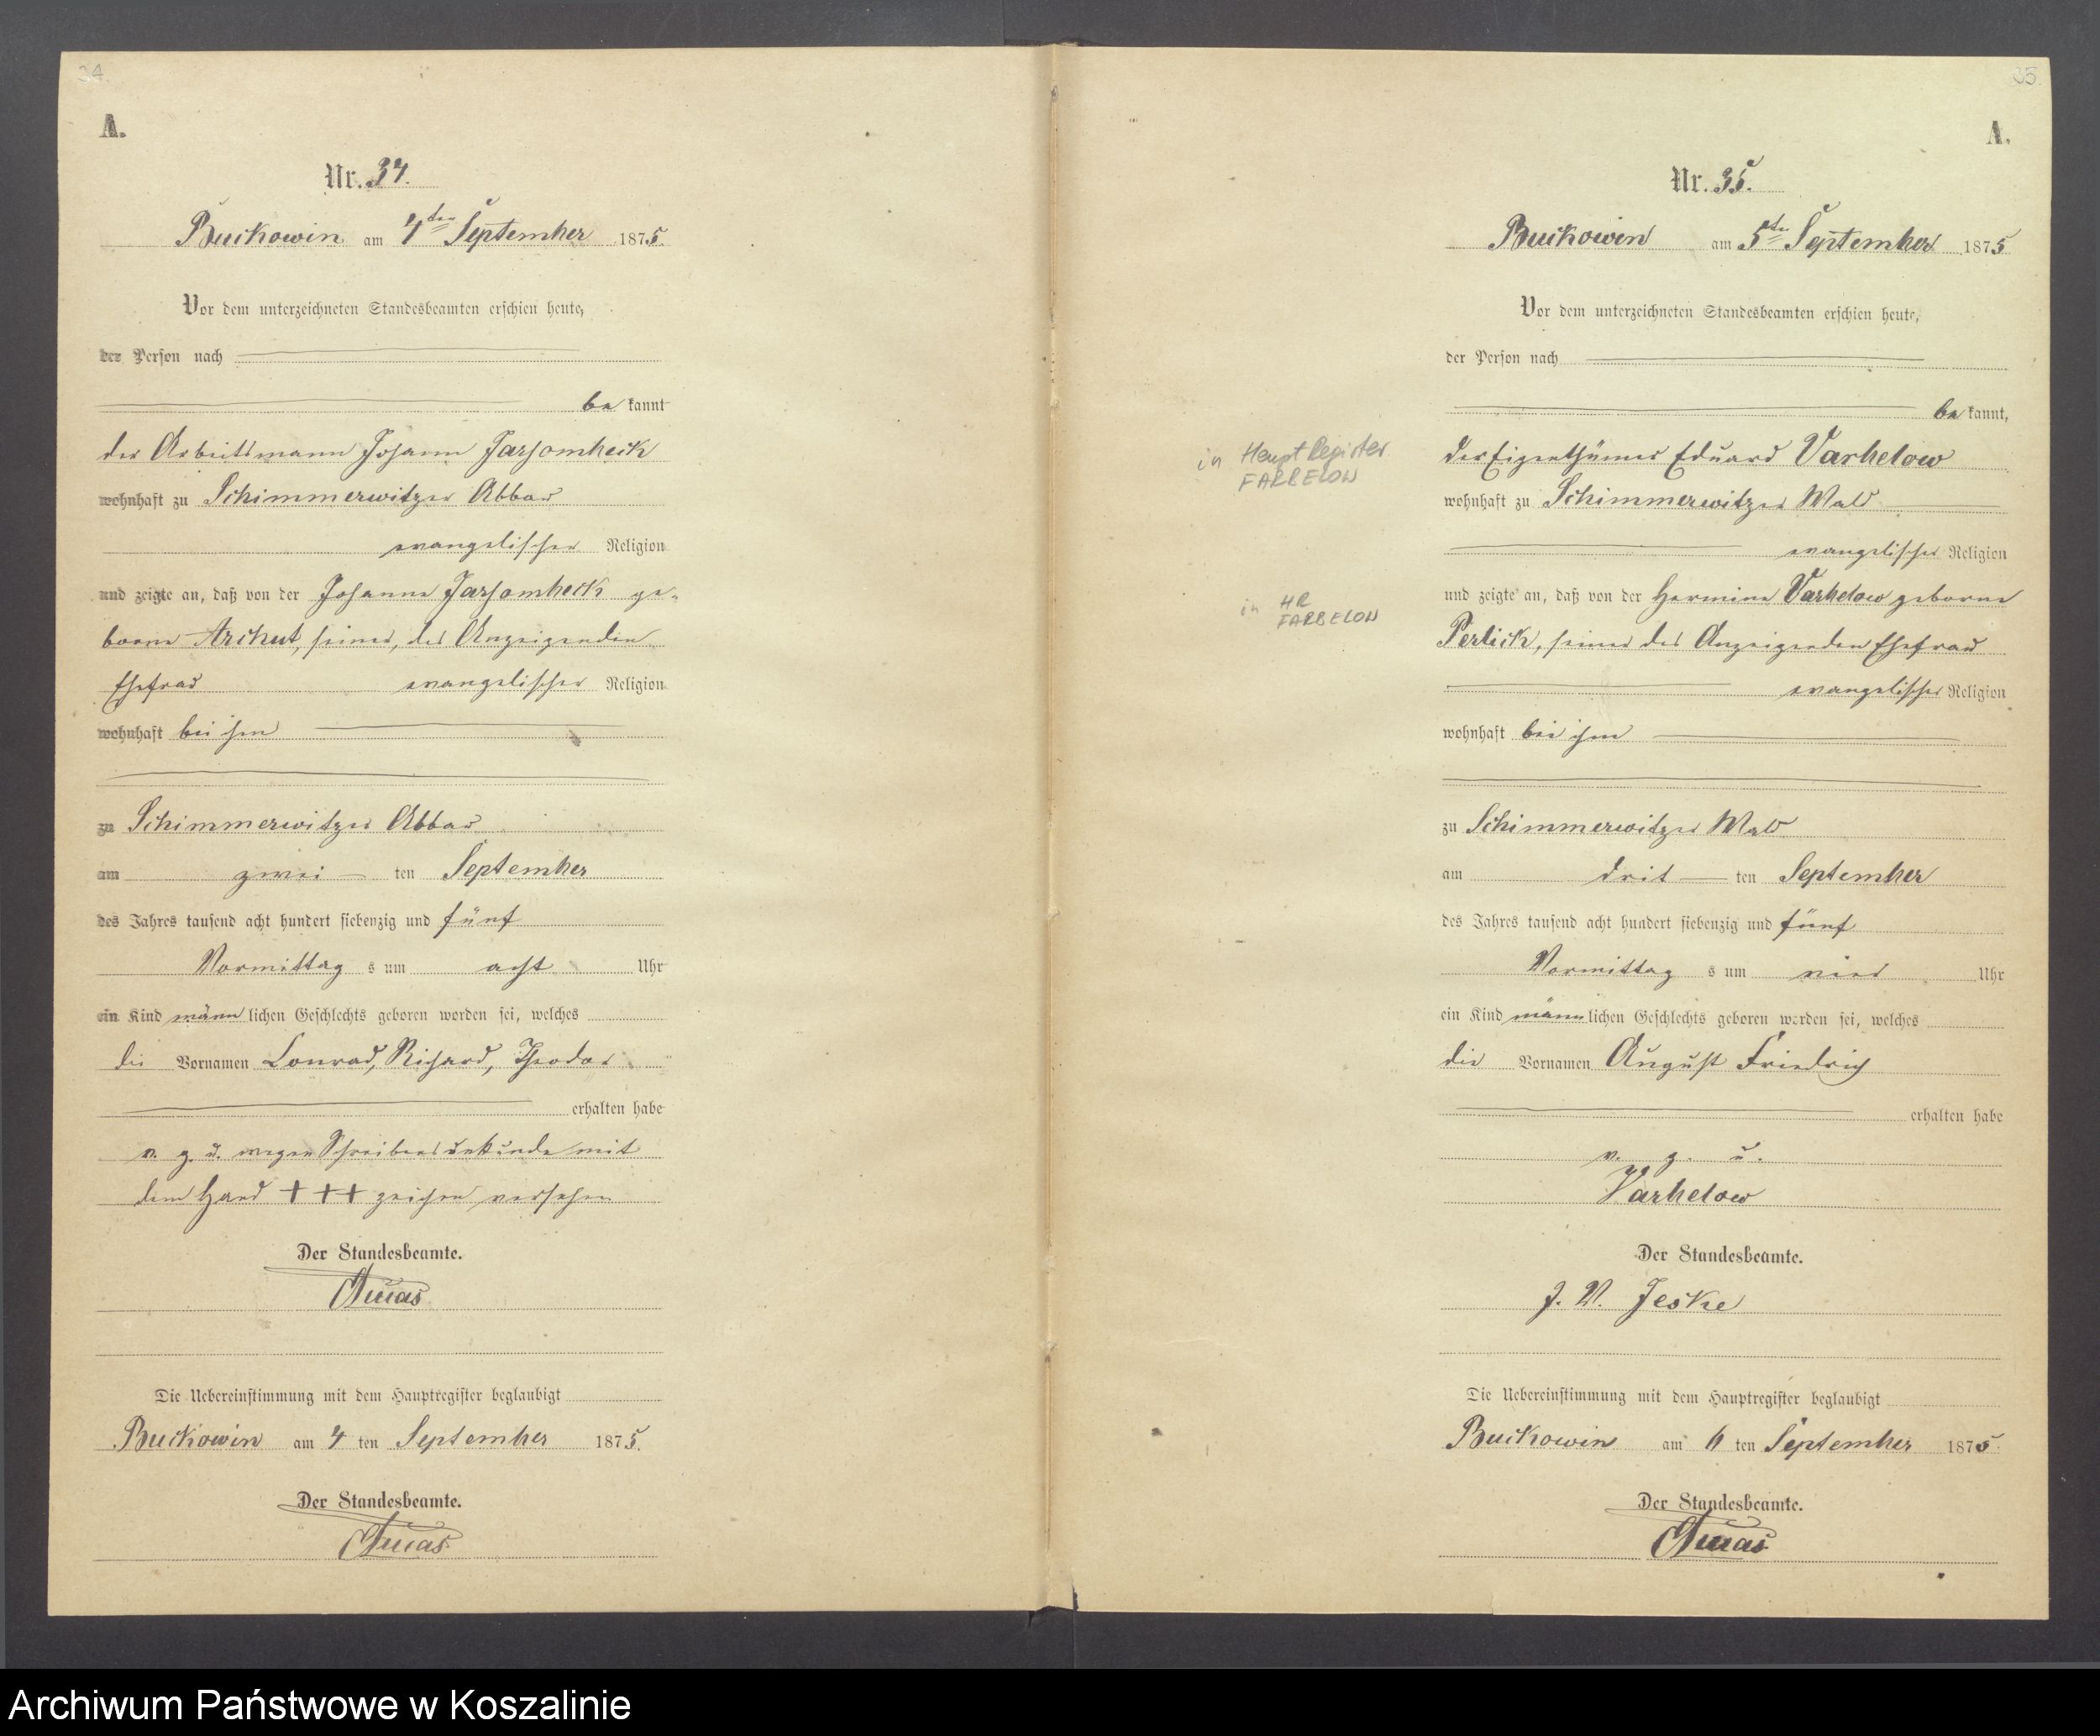 34.
A.
Nr. 34.
Buckowin am 4ten September 1875.
Vor dem unterzeichneten Standesbeamten erschien heute,
der Person nach
be kannt
der Arbeitsmann Johann Jarsombeck
wohnhaft zu Schimmerwitzer Abbau
evangelischer Religion
und zeigte an, daß von der Johanne Jarsombeck ge-
borne Archut, seiner, des Anzeigenden
Ehefrau evangelischer Religion
wohnhaft bei ihm
zu Schimmerwitzer Abbau
am zwei ten September
des Jahres tausend acht hundert siebenzig und fünf
Vormittag s um acht Uhr
ein Kind männ lichen Geschlechts geboren worden sei, welches
die Vornamen Conrad, Richard, Theodor
erhalten habe
v. g. u. wegen Schreibensunkunde mit
dem Hand +++ zeichen versehen
Der Standesbeamte.
Die Uebereinstimmung mit dem Hauptregister beglaubigt
Buckowin am 4 ten September 1875.
Der Standesbeamte.
35.
A.
Nr. 35.
Buckowin am 5ten September 1875
Vor dem unterzeichneten Standesbeamten erschien heute,
der Person nach
be kannt,
der Eigenthümer Eduard Varbelow
in Haupt Register
FARBELOW
wohnhaft zu Schimmerwitzer Wald
evangelischer Religion
und zeigte an, daß von der Hermine Varbelow geborne
in HR
FARBELOW
Perlick, seiner des Anzeigenden Ehefrau
evangelischer Religion
wohnhaft bei ihm
zu Schimmerwitzer Wald
am drit ten September
des Jahres tausend acht hundert siebenzig und fünf
Vormittag s um vier Uhr
ein Kind männ lichen Geschlechts geboren worden sei, welches
die Vornamen August Friedrich
erhalten habe
v. g. u.
Varbelow
Der Standesbeamte.
J. V. Jeske
Die Uebereinstimmung mit dem Hauptregister beglaubigt
Buckowin am 6 ten September 1875
Der Standesbeamte.
Archiwum Państwowe w Koszalinie